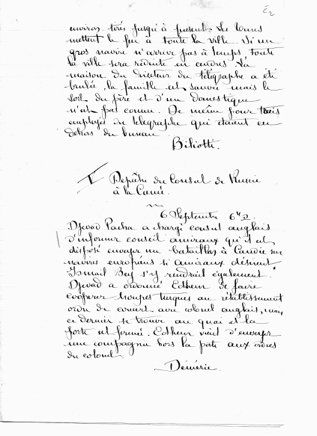 E2
environs tous jusqu'à présent. Les turcs
mettent le feu à toute la ville. Si un
gros navire n'arrive pas à temps toute
la ville sera réduite en cendres. La
maison du directeur du télégraphe a été
brulée la famille est sauvée mais le
sort du père et d'un domestique
n'est pas connu. De même pour trois
employés du télégraphe qui étaient en
dehors du bureau
Biliotti.
Dépêche du Consul de Russie
à la Canée.
6 Septembre
Djevad Pacha a chargé consul anglais
d'informer conseil amiraux qu'il est
disposé envoyer un bataillon à Candie sur
navires européens si amiraux désirent
Ismail Bey s'y rendrait également
Djevad a ordonné Edhem de faire
coopérer troupes turques au rétablissement
ordre de concert avec colonel anglais, mais
ce dernier se trouve au quai et la
porte est fermée. Edhem vient d'envoyer
une compagnie hors la porte aux ordres
du colonel
Démeric.